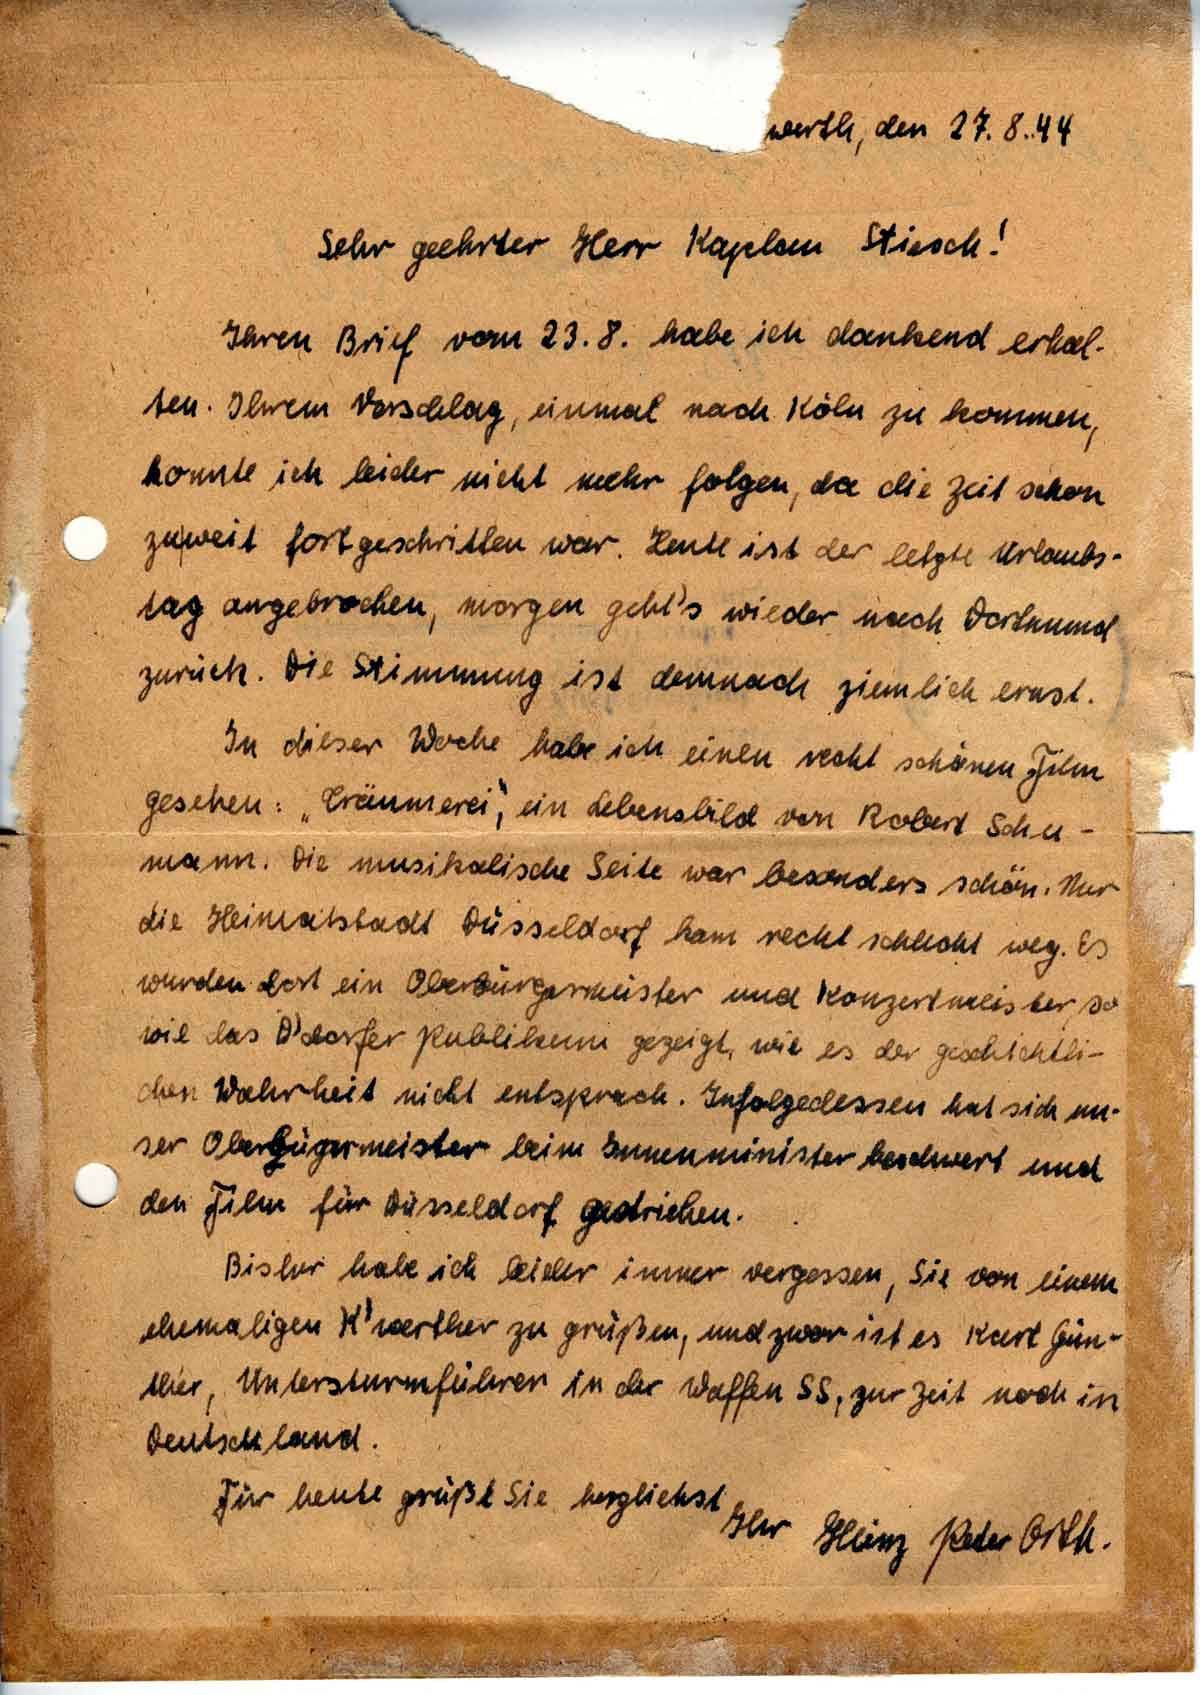 werth, den 27.8.44
Sehr geehrter Herr Kaplan Stiesch!
Ihren Brief vom 23.8. habe ich dankend erhal-
ten. Ihrem Vorschlag, einmal nach Köln zu kommen,
konnte ich leider nicht mehr folgen, da die Zeit schon
zu weit fortgeschritten war. Heute ist der letzte Urlaubs-
tag angebrochen, morgen geht's wieder nach Dortmund
zurück. Die Stimmung ist demnach ziemlich ernst.
In dieser Woche habe ich einen recht schönen Film
gesehen: „Träumerei", ein Lebensbild von Robert Schu-
mann. Die musikalische Seite war besonders schön. Nur
die Heimatstadt Düsseldorf kam recht schlecht weg. Es
wurden dort ein Oberbürgermeister und Konzertmeister, so
wie das D'dorfer Publikum gezeigt, wie es der geschichtli-
chen Wahrheit nicht entsprach. Infolgedessen hat sich un-
ser Oberbügermeister beim Innenminister beschwert und
den Film für Düsseldorf gestrichen.
Bisher habe ich leider immer vergessen, Sie von einem
ehemaligen K'werther zu grüßen, und zwar ist es Karl Gün-
ther, Untersturmführer in der Waffen SS, zur Zeit noch in
Deutschland.
Für heute grüßt Sie herzlichst
Ihr Heinz Peter Orth.